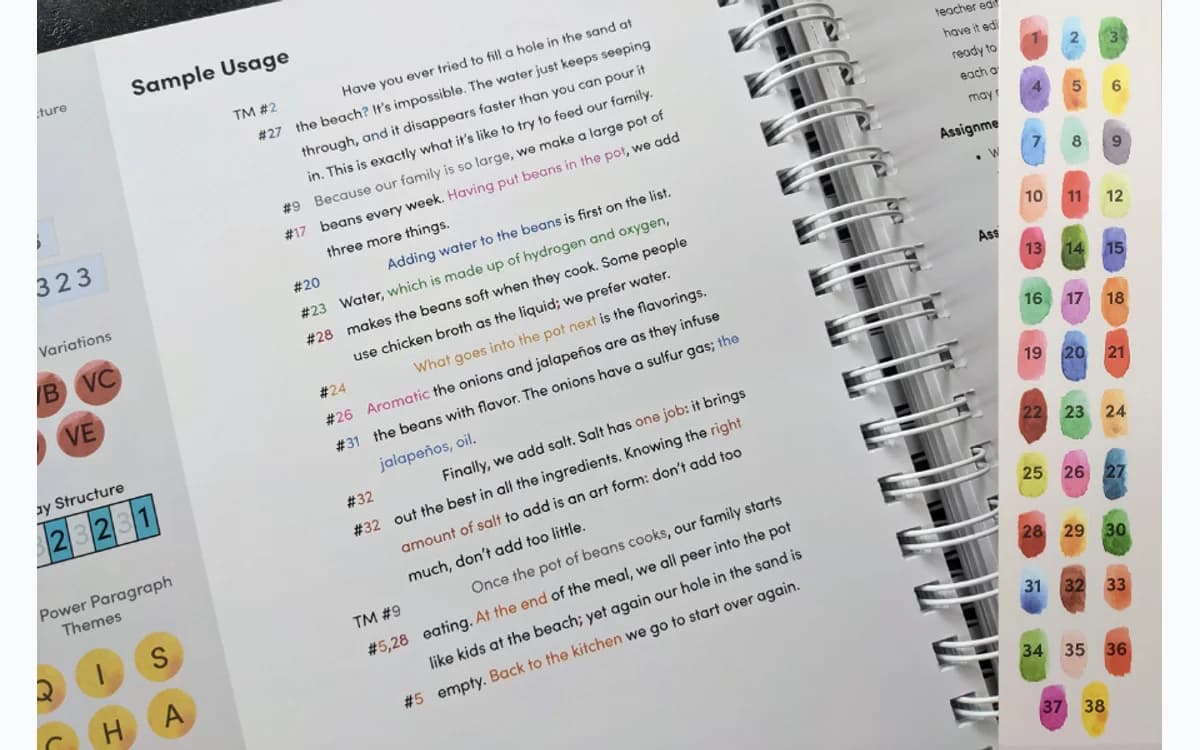 :ture
323
Variations
VB VC
VE
ay Structure
3 2 3 2 3 1
Power Paragraph
Themes
Q I S
C H A
Sample Usage
TM #2 Have you ever tried to fill a hole in the sand at
#27 the beach? It's impossible. The water just keeps seeping
through, and it disappears faster than you can pour it
in. This is exactly what it's like to try to feed our family.
#9 Because our family is so large, we make a large pot of
#17 beans every week. Having put beans in the pot, we add
three more things.
#20 Adding water to the beans is first on the list.
#23 Water, which is made up of hydrogen and oxygen,
#28 makes the beans soft when they cook. Some people
use chicken broth as the liquid; we prefer water.
#24 What goes into the pot next is the flavorings.
#26 Aromatic the onions and jalapeños are as they infuse
#31 the beans with flavor. The onions have a sulfur gas; the
jalapeños, oil.
#32 Finally, we add salt. Salt has one job: it brings
#32 out the best in all the ingredients. Knowing the right
amount of salt to add is an art form: don't add too
much, don't add too little.
TM #9 Once the pot of beans cooks, our family starts
#5,28 eating. At the end of the meal, we all peer into the pot
like kids at the beach; yet again our hole in the sand is
#5 empty. Back to the kitchen we go to start over again.
teacher edi
have it edi
ready to
each a
may
Assignme
• W
Ass
1 2 3
4 5 6
7 8 9
10 11 12
13 14 15
16 17 18
19 20 21
22 23 24
25 26 27
28 29 30
31 32 33
34 35 36
37 38